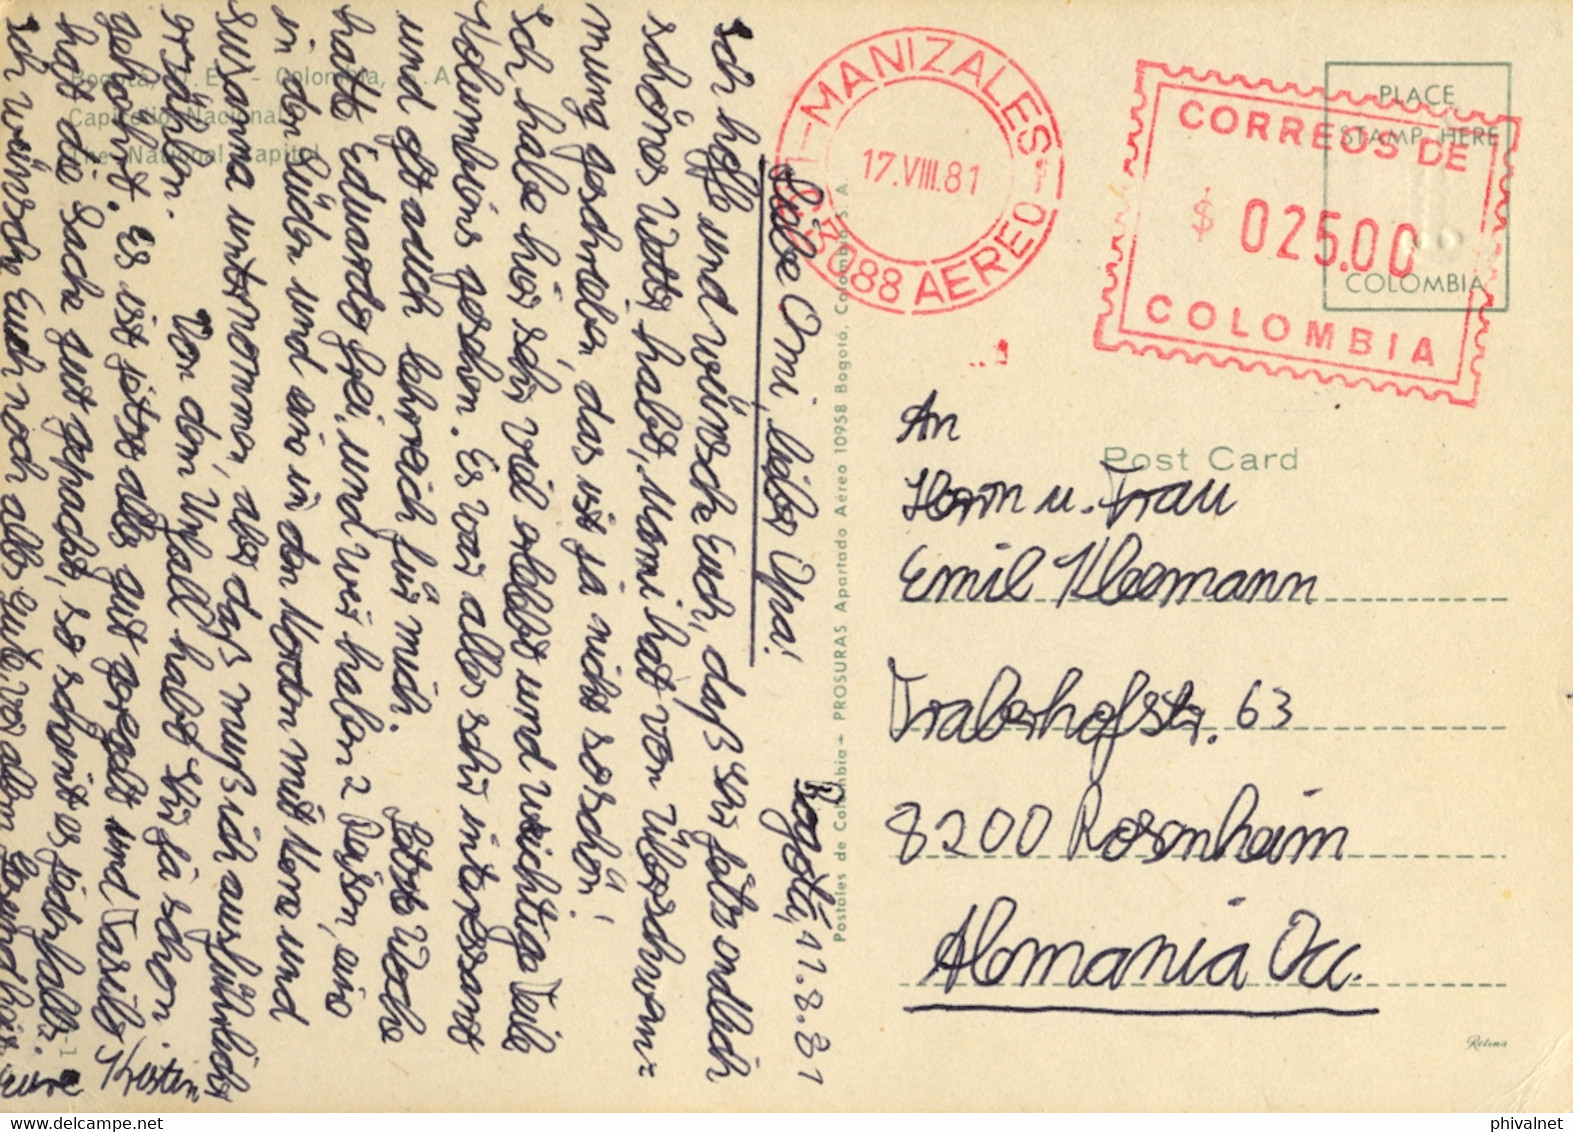 Bogotá, D. E. - Colombia, S. A.
Capitolio Nacional
The National Capitol
Bogotá, 11.8.81
Liebe Omi, lieber Opa!
Ich hoffe und wünsche Euch, daß Ihr jetzt endlich
schönes Wetter habt, Mami hat von Überschwem-
mung geschrieben, das ist ja nicht so schön!
Ich habe hier sehr viel erlebt und wichtige Teile
Kolumbiens gesehen. Es war alles sehr interessant
und oft auch lehrreich für mich. Letzte Woche
hatte Eduardo frei, und wir haben 2 Reisen, eine
in den Süden und eine in den Norden mit Nora und
Susanna unternommen, aber das muß ich ausführlicher
erzählen.
Von dem Unfall habt Ihr ja schon
gehört. Es ist jetzt alles gut geregelt und
hat die Sache gut gepackt, so scheint es jedenfalls.
Ich wünsche Euch noch alles Gute, vor allem Gesundheit
Eure Kristin
Postales de Colombia - PROSURAS Apartado Aéreo 10958 Bogotá, Colombia S. A.
MANIZALES
17.VIII.81
AEREO
PLACE
STAMP HERE
COLOMBIA
CORREOS DE
$ 025.00
COLOMBIA
Post Card
An
Herrn u. Frau
Emil Kleemann
Traberhofstr. 63
8200 Rosenheim
Alemania Occ.
Retina